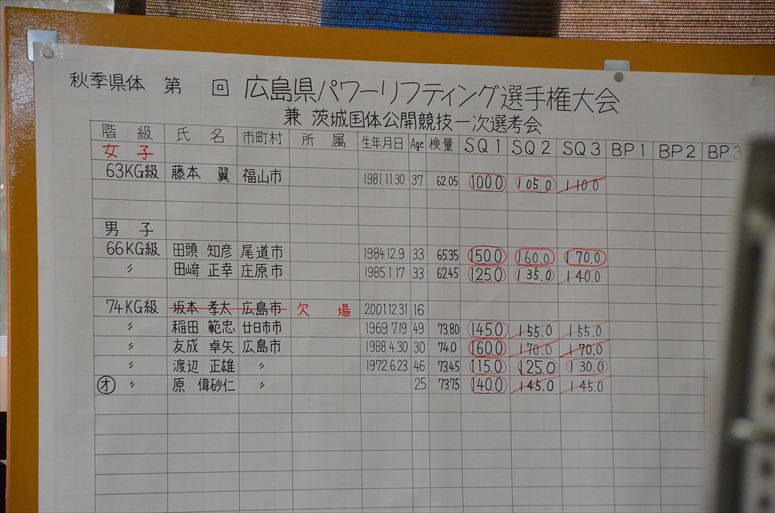 秋季県体 第 回 広島県パワーリフティング選手権大会
兼 茨城国体公開競技一次選考会
階級 氏名 市町村 所属 生年月日 Age 検量 SQ1 SQ2 SQ3 BP1 BP2 BP3
女子
63KG級 藤本 翼 福山市 1981.11.30 37 62.05 100.0 105.0 110.0
男子
66KG級 田頭 知彦 尾道市 1984.12.9 33 65.35 150.0 160.0 170.0
〃 田﨑 正幸 庄原市 1985.1.17 33 62.45 125.0 135.0 140.0
74KG級 坂本 孝太 広島市 欠場 2001.12.31 16
〃 稲田 範忠 廿日市市 1969.7.19 49 73.80 145.0 155.0 155.0
〃 友成 卓矢 広島市 1988.4.30 30 74.0 160.0 170.0 170.0
〃 渡辺 正雄 〃 1972.6.23 46 73.45 115.0 125.0 130.0
オ 〃 原 偉砂仁 25 73.75 140.0 145.0 145.0